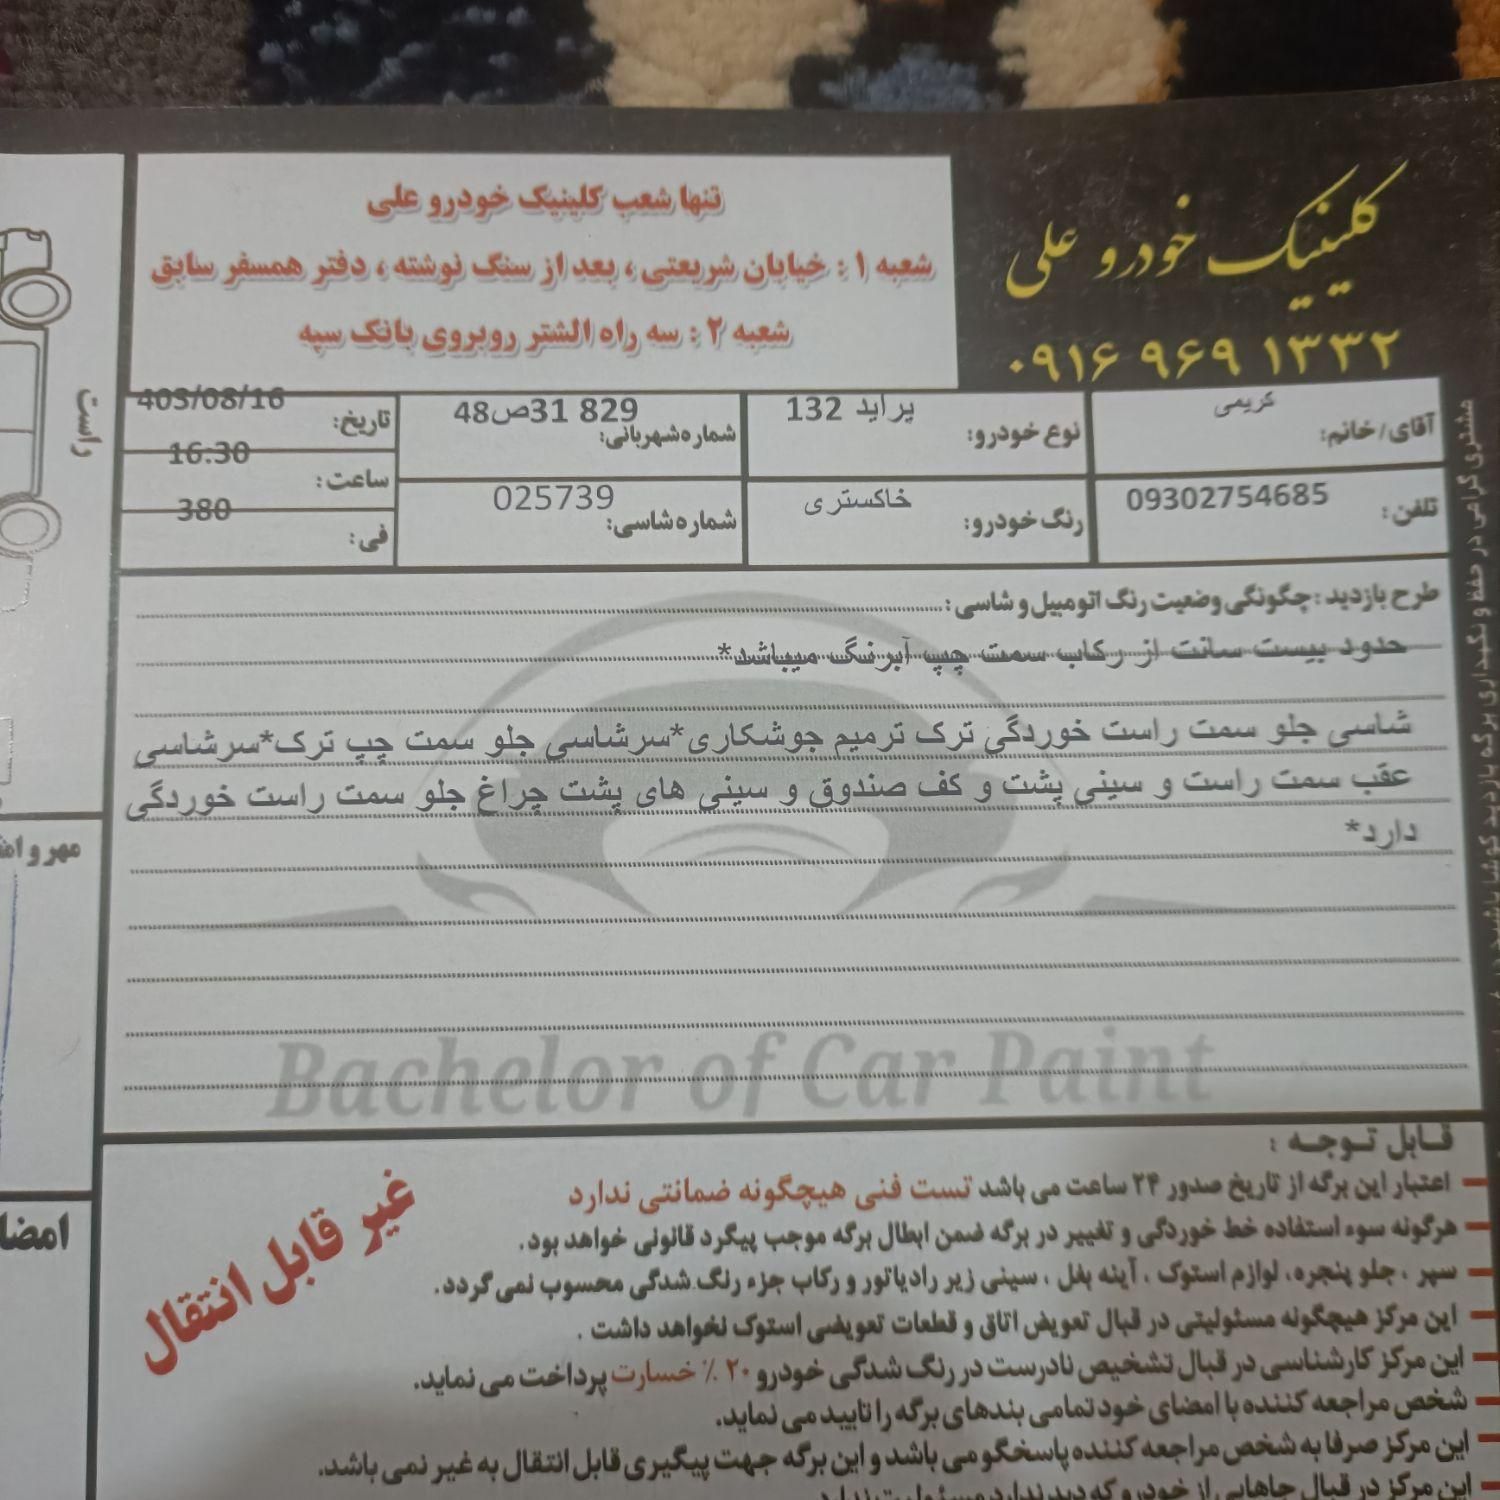 کلینیک خودرو علی
۰۹۱۶ ۹۶۹ ۱۳۳۲
تنها شعب کلینیک خودرو علی
شعبه ۱ : خیابان شریعتی ، بعد از سنگ نوشته ، دفتر همسفر سابق
شعبه ۲ : سه راه الشتر روبروی بانک سپه
آقای/خانم: کریمی
نوع خودرو: پراید 132
شماره شهربانی: 829 31ص48
تاریخ: 403/08/16
ساعت: 16:30
تلفن: 09302754685
رنگ خودرو: خاکستری
شماره شاسی: 025739
فی: 380
طرح بازدید : چگونگی وضعیت رنگ اتومبیل و شاسی :
حدود بیست سانت از رکاب سمت چپ آبرنگ میباشد*
شاسی جلو سمت راست خوردگی ترک ترمیم جوشکاری*سرشاسی جلو سمت چپ ترک*سرشاسی
عقب سمت راست و سینی پشت و کف صندوق و سینی های پشت چراغ جلو سمت راست خوردگی
دارد*
Bachelor of Car Paint
قابل توجه :
اعتبار این برگه از تاریخ صدور ۲۴ ساعت می باشد تست فنی هیچگونه ضمانتی ندارد
هرگونه سوء استفاده خط خوردگی و تغییر در برگه ضمن ابطال برگه موجب پیگرد قانونی خواهد بود.
سپر ، جلو پنجره، لوازم استوک ، آینه بغل ، سینی زیر رادیاتور و رکاب جزء رنگ شدگی محسوب نمی گردد.
این مرکز هیچگونه مسئولیتی در قبال تعویض اتاق و قطعات تعویضی استوک نخواهد داشت .
این مرکز کارشناسی در قبال تشخیص نادرست در رنگ شدگی خودرو ۲۰ ٪ خسارت پرداخت می نماید.
شخص مراجعه کننده با امضای خود تمامی بندهای برگه را تایید می نماید.
این مرکز صرفا به شخص مراجعه کننده پاسخگو می باشد و این برگه جهت پیگیری قابل انتقال به غیر نمی باشد.
این مرکز در قبال جاهایی از خودرو که دید ندارد مسئولیت ندارد
غیر قابل انتقال
راست
مهر و امضا
امضا
مشتری گرامی در حفظ و نگهداری برگه بازدید کوشا باشید